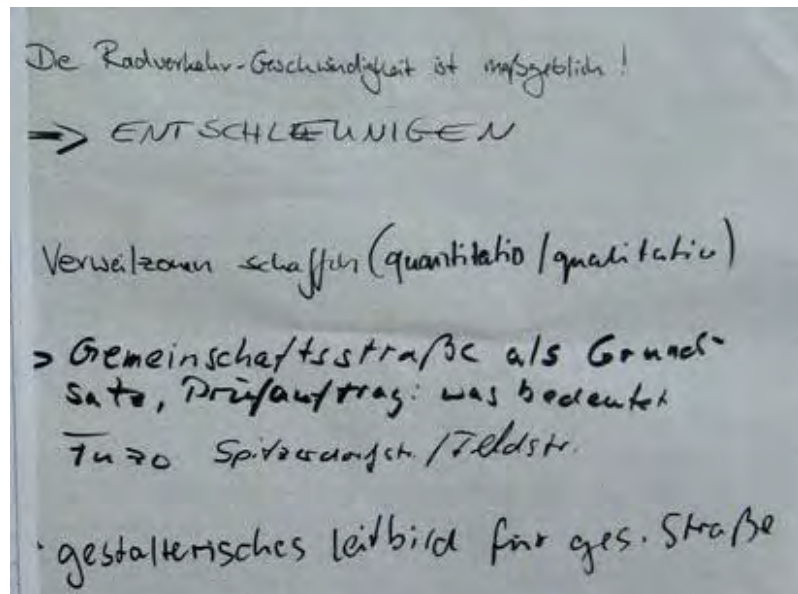 Die Radverkehr-Geschwindigkeit ist maßgeblich!
=> ENTSCHLEUNIGEN
Verweilzonen schaffen (quantitativ / qualitativ)
> Gemeinschaftsstraße als Grund-
satz, Prüfauftrag: was bedeutet
T 30 Spitzerdorfstr. / Feldstr.
· gestalterisches Leitbild für ges. Straße